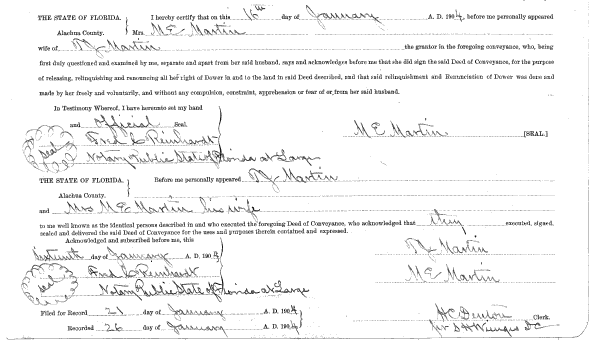 THE STATE OF FLORIDA. I hereby certify that on this 16th day of January A. D. 1904, before me personally appeared
Alachua County. Mrs. M E Martin
wife of T J Martin the grantor in the foregoing conveyance, who, being
first duly questioned and examined by me, separate and apart from her said husband, says and acknowledges before me that she did sign the said Deed of Conveyance, for the purpose
of releasing, relinquishing and renouncing all her right of Dower in and to the land in said Deed described, and that said relinquishment and Renunciation of Dower was done and
made by her freely and voluntarily, and without any compulsion, constraint, apprehension or fear of or from her said husband.
In Testimony Whereof, I have hereunto set my hand
and official Seal
Seal Fred C Reinhardt M E Martin [SEAL.]
Notary Public State of Florida at Large
THE STATE OF FLORIDA. Before me personally appeared T J Martin
Alachua County.
and Mrs M E Martin his wife
to me well known as the identical persons described in and who executed the foregoing Deed of Conveyance, who acknowledged that they executed, signed,
sealed and delivered the said Deed of Conveyance for the uses and purposes therein contained and expressed.
Acknowledged and subscribed before me, this
sixteenth day of January A. D. 1904 T J Martin
Seal Fred C Reinhardt M E Martin
Notary Public State of Florida at Large
Filed for Record 21 day of January A. D. 1904 H C Denton Clerk.
Recorded 26 day of January A. D. 1904 per S H Wienges D C